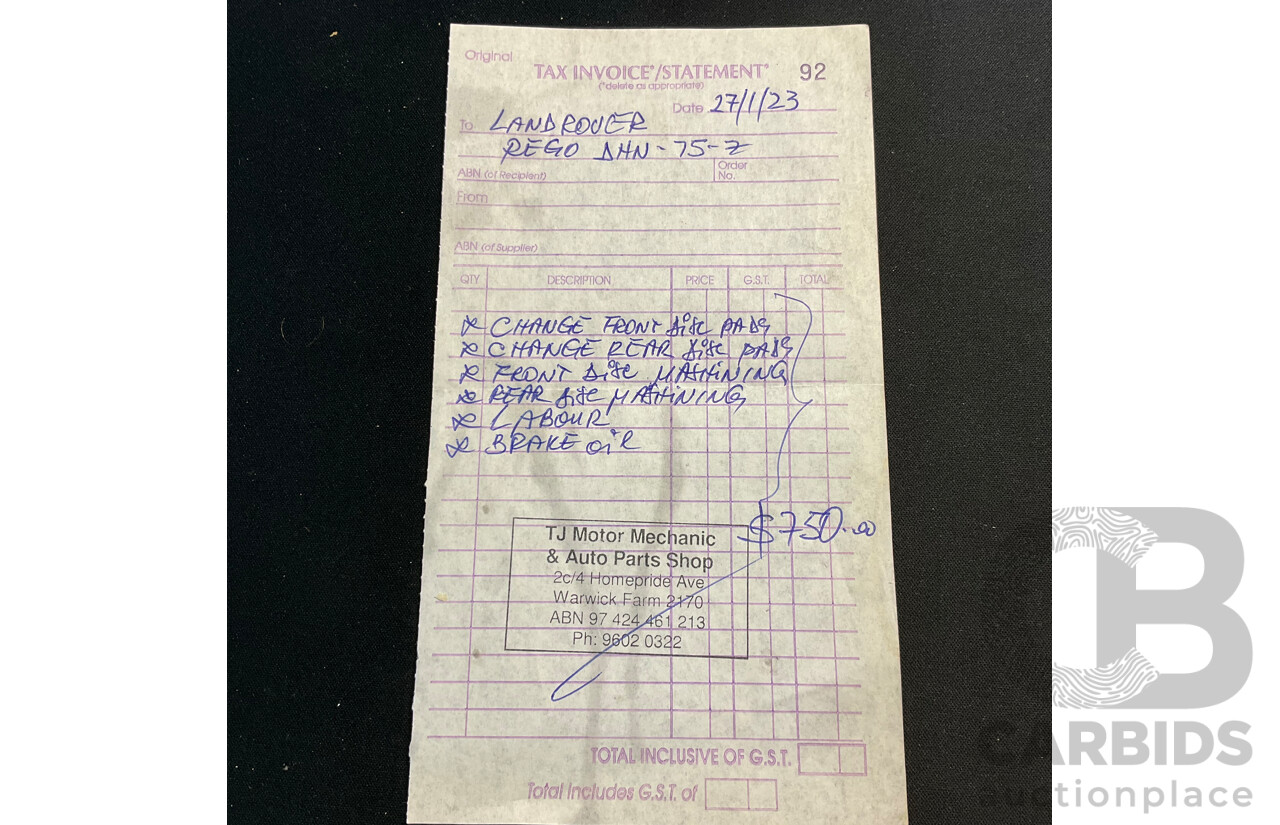 Original
TAX INVOICE*/STATEMENT* 92
(*delete as appropriate)
Date 27/1/23
To LANDROVER
REGO DHN-75-Z
ABN (of Recipient) Order No.
From
ABN (of Supplier)
QTY DESCRIPTION PRICE G.S.T. TOTAL
CHANGE FRONT disc PADS
CHANGE REAR disc PADS
FRONT disc MASHINING
REAR disc MASHINING
LABOUR
BRAKE oil
$750.00
TJ Motor Mechanic
& Auto Parts Shop
2c/4 Homepride Ave
Warwick Farm 2170
ABN 97 424 461 213
Ph: 9602 0322
TOTAL INCLUSIVE OF G.S.T.
Total Includes G.S.T. of
CARBIDS
auctionplace